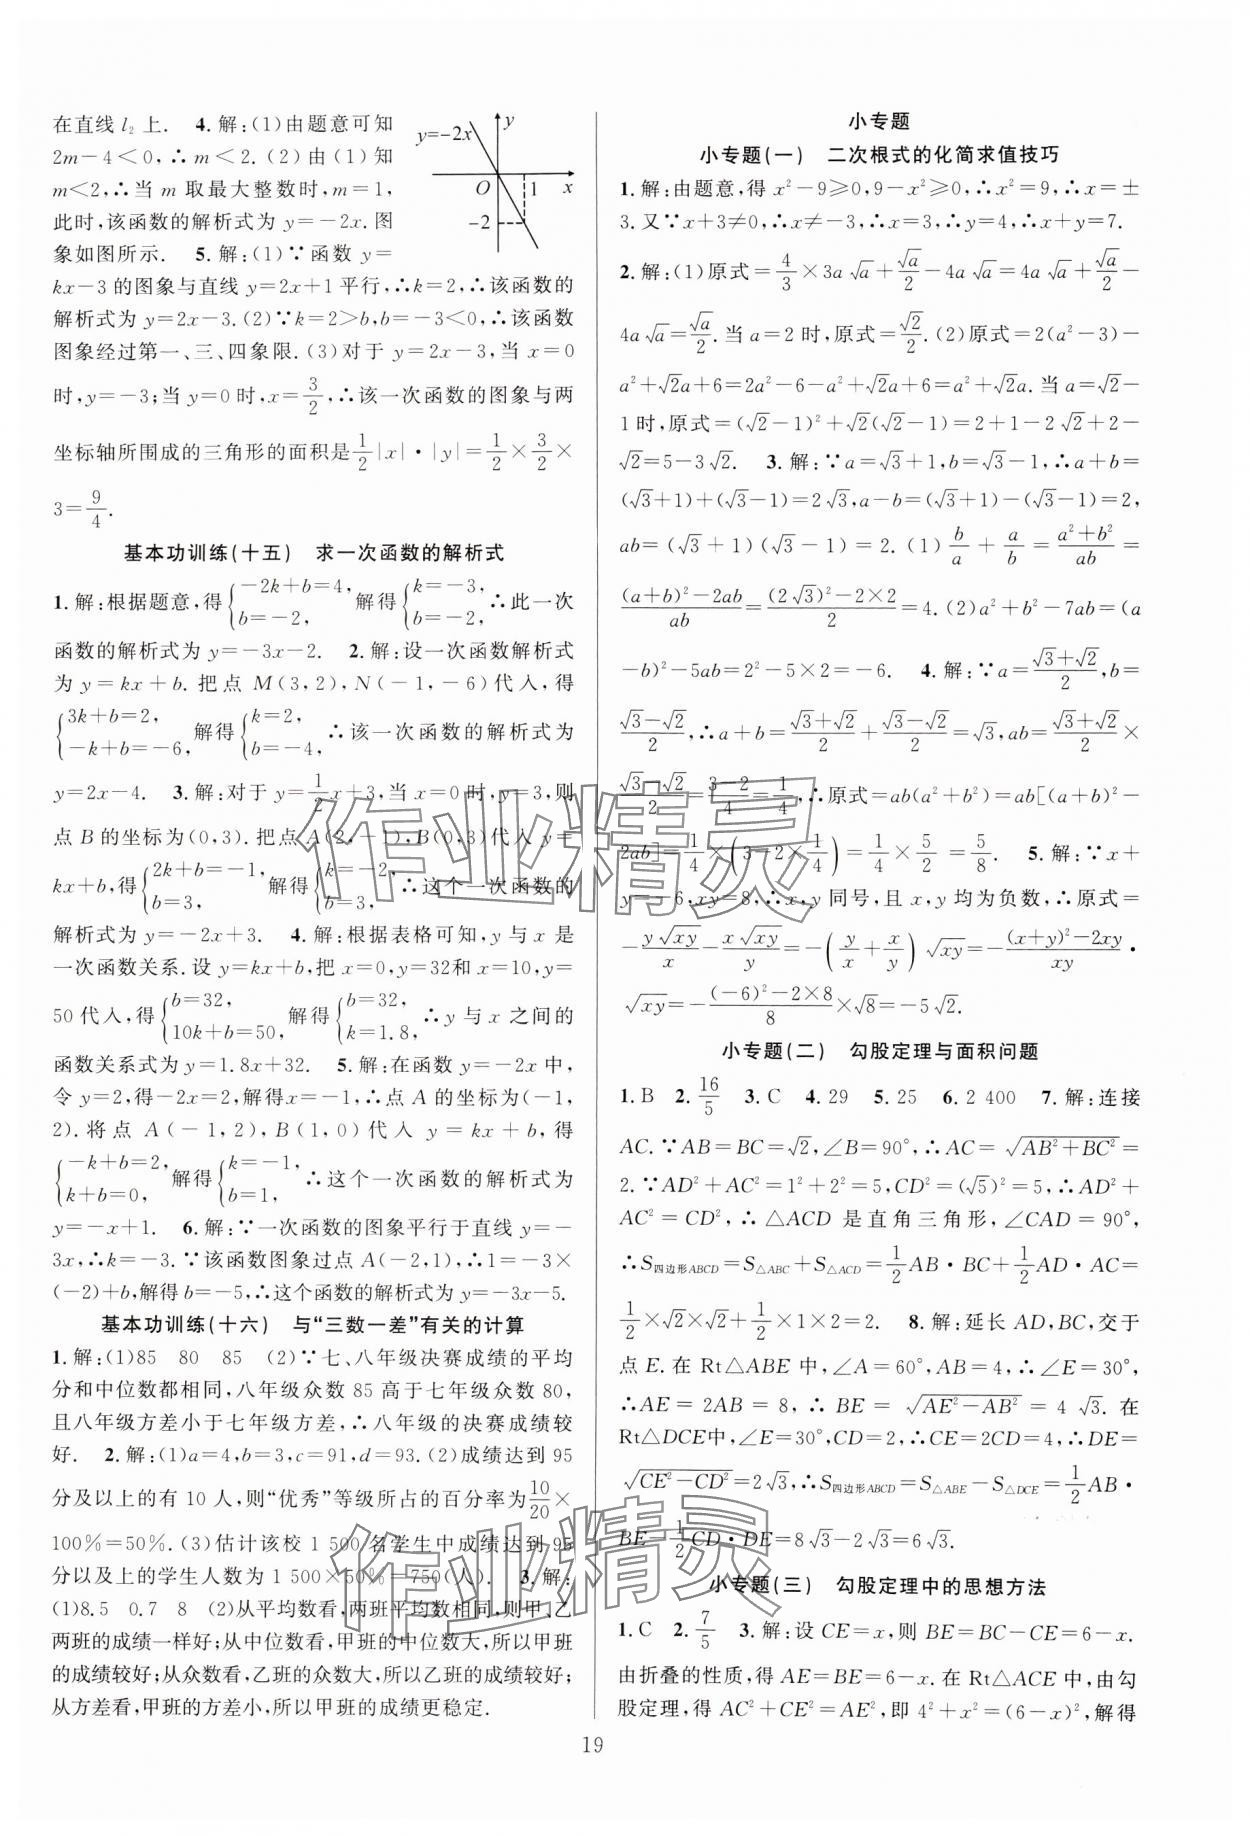 在直线 l₂ 上.　4.解:(1)由题意可知
2m－4＜0,∴m＜2.(2)由(1)知
m＜2,∴当 m 取最大整数时,m＝1,
此时,该函数的解析式为 y＝－2x.图
象如图所示.　5.解:(1)∵函数 y＝
y=－2x
y
O
1
x
－2
kx－3 的图象与直线 y＝2x＋1 平行,∴k＝2,∴该函数的
解析式为 y＝2x－3.(2)∵k＝2＞b,b＝－3＜0,∴该函数
图象经过第一、三、四象限.(3)对于 y＝2x－3,当 x＝0
时,y＝－3;当 y＝0时,x＝3/2,∴该一次函数的图象与两
坐标轴所围成的三角形的面积是1/2|x|·|y|＝1/2×3/2×
3＝9/4.
基本功训练(十五)　求一次函数的解析式
1.解:根据题意,得{－2k＋b＝4, b＝－2, 解得{k＝－3, b＝－2, ∴此一次
函数的解析式为 y＝－3x－2.　2.解:设一次函数解析式
为 y＝kx＋b.把点 M(3,2),N(－1,－6)代入,得
{3k＋b＝2, －k＋b＝－6, 解得{k＝2, b＝－4, ∴该一次函数的解析式为
y＝2x－4.　3.解:对于 y＝1/2x＋3,当 x＝0时,y＝3,则
点 B 的坐标为(0,3).把点 A(2,－1),B(0,3)代入 y＝
kx＋b,得{2k＋b＝－1, b＝3, 解得{k＝－2, b＝3, ∴这个一次函数的
解析式为 y＝－2x＋3.　4.解:根据表格可知,y 与 x 是
一次函数关系.设 y＝kx＋b,把 x＝0,y＝32和 x＝10,y＝
50代入,得{b＝32, 10k＋b＝50, 解得{b＝32, k＝1.8, ∴y 与 x 之间的
函数关系式为 y＝1.8x＋32.　5.解:在函数 y＝－2x 中,
令 y＝2,得－2x＝2,解得 x＝－1,∴点 A 的坐标为(－1,
2).将点 A(－1,2),B(1,0)代入 y＝kx＋b,得
{－k＋b＝2, k＋b＝0, 解得{k＝－1, b＝1, ∴这个一次函数的解析式为
y＝－x＋1.　6.解:∵一次函数的图象平行于直线 y＝－
3x,∴k＝－3.∵该函数图象过点 A(－2,1),∴1＝－3×
(－2)＋b,解得 b＝－5,∴这个函数的解析式为 y＝－3x－5.
基本功训练(十六)　与“三数一差”有关的计算
1.解:(1)85　80　85　(2)∵七、八年级决赛成绩的平均
分和中位数都相同,八年级众数 85 高于七年级众数 80,
且八年级方差小于七年级方差,∴八年级的决赛成绩较
好.　2.解:(1)a＝4,b＝3,c＝91,d＝93.(2)成绩达到 95
分及以上的有 10 人,则“优秀”等级所占的百分率为10/20×
100％＝50％.(3)估计该校 1 500名学生中成绩达到 95
分以及上的学生人数为 1 500×50％＝750(人).　3.解:
(1)8.5　0.7　8　(2)从平均数看,两班平均数相同,则甲、乙
两班的成绩一样好;从中位数看,甲班的中位数大,所以甲班
的成绩较好;从众数看,乙班的众数大,所以乙班的成绩较好;
从方差看,甲班的方差小,所以甲班的成绩更稳定.
小专题
小专题(一)　二次根式的化简求值技巧
1.解:由题意,得 x²－9≥0,9－x²≥0,∴x²＝9,∴x＝±
3.又∵x＋3≠0,∴x≠－3,∴x＝3,∴y＝4,∴x＋y＝7.
2.解:(1)原式＝4/3×3a√a＋√a/2－4a√a＝4a√a＋√a/2－
4a√a＝√a/2.当 a＝2时,原式＝√2/2.(2)原式＝2(a²－3)－
a²＋√2a＋6＝2a²－6－a²＋√2a＋6＝a²＋√2a.当 a＝√2－
1时,原式＝(√2－1)²＋√2(√2－1)＝2＋1－2√2＋2－
√2＝5－3√2.　3.解:∵a＝√3＋1,b＝√3－1,∴a＋b＝
(√3＋1)＋(√3－1)＝2√3,a－b＝(√3＋1)－(√3－1)＝2,
ab＝(√3＋1)(√3－1)＝2.(1)b/a＋a/b＝(a²＋b²)/ab＝
((a＋b)²－2ab)/ab＝((2√3)²－2×2)/2＝4.(2)a²＋b²－7ab＝(a
－b)²－5ab＝2²－5×2＝－6.　4.解:∵a＝(√3＋√2)/2,b＝
(√3－√2)/2,∴a＋b＝(√3＋√2)/2＋(√3－√2)/2＝√3,ab＝(√3＋√2)/2×
(√3－√2)/2＝(3－2)/4＝1/4,∴原式＝ab(a²＋b²)＝ab[(a＋b)²－
2ab]＝1/4×(3－2×1/4)＝1/4×5/2＝5/8.　5.解:∵x＋
y＝－6,xy＝8,∴x,y 同号,且 x,y 均为负数,∴原式＝
－y√xy/x－x√xy/y＝－(y/x＋x/y)√xy＝－((x＋y)²－2xy)/xy·
√xy＝－((－6)²－2×8)/8×√8＝－5√2.
小专题(二)　勾股定理与面积问题
1.B　2.16/5　3.C　4.29　5.25　6.2 400　7.解:连接
AC.∵AB＝BC＝√2,∠B＝90°,∴AC＝√(AB²＋BC²)＝
2.∵AD²＋AC²＝1²＋2²＝5,CD²＝(√5)²＝5,∴AD²＋
AC²＝CD²,∴△ACD 是直角三角形,∠CAD＝90°,
∴S四边形ABCD＝S△ABC＋S△ACD＝1/2AB·BC＋1/2AD·AC＝
1/2×√2×√2＋1/2×1×2＝2.　8.解:延长 AD,BC,交于
点 E.在 Rt△ABE 中,∠A＝60°,AB＝4,∴∠E＝30°,
∴AE＝2AB＝8,∴BE＝√(AE²－AB²)＝4√3.在
Rt△DCE中,∠E＝30°,CD＝2,∴CE＝2CD＝4,∴DE＝
√(CE²－CD²)＝2√3,∴S四边形ABCD＝S△ABE－S△DCE＝1/2AB·
BE－1/2CD·DE＝8√3－2√3＝6√3.
小专题(三)　勾股定理中的思想方法
1.C　2.7/5　3.解:设 CE＝x,则 BE＝BC－CE＝6－x.
由折叠的性质,得 AE＝BE＝6－x.在 Rt△ACE 中,由勾
股定理,得 AC²＋CE²＝AE²,即 4²＋x²＝(6－x)²,解得
19
作业精灵
作业精灵